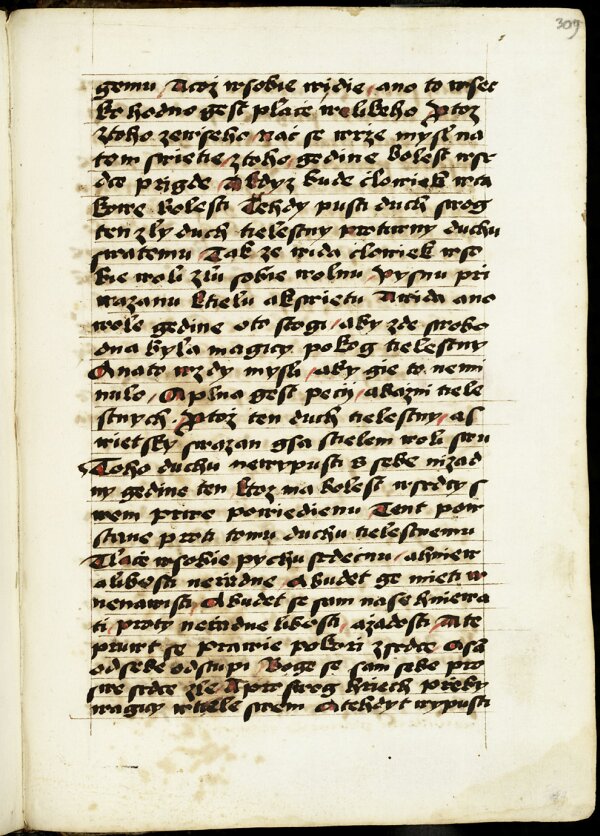 309
gemu Atoz wsobie widie ano to wsec
ko hodno gest place welikeho Ptoz
ztoho zewseho nac se wrze mysl na
tom swietie ztoho gedine bolest wsr
dce prigde Akdyz bude clowiek wta
kowe bolesti Tehdy pusti duch swog
ten zly duch tielestny protiwny duchu
swatemu Tak ze wida clowiek wso
bie woli zlu sobie wolnu Pysnu pri
wazanu ktielu akswietu Awida ano
wole gedine oto stogi aby zde swobo
dna byla magicy pokog tielestny
Anato wzdy mysli aby gie to nemi
nulo Aplna gest pecij akazni tiele
stnych Ptoz ten duch tielestny as
wietsky swazan gsa stielem woli swu
Toho duchu newypusti s sebe nizad
ny gedine ten ktoz ma bolest wsrdcy s
wem prwe powiedienu Tent pow
stane proti tomu duchu tielestnemu
Tlace wsobie pychu srdecnu ahniew
alibosti neradne Abudet ge mieti w
nenawisti Abudet se sam nase hniewa
ti proty neradne libosti azadosti Ate
prwt se prawie pokori zsrdce Asa
odsebe odstupi Boge se sam sebe pro
swe srdce zle Apro swog hriech przeby
wagicy wtiele swem Atehdyt wypusti